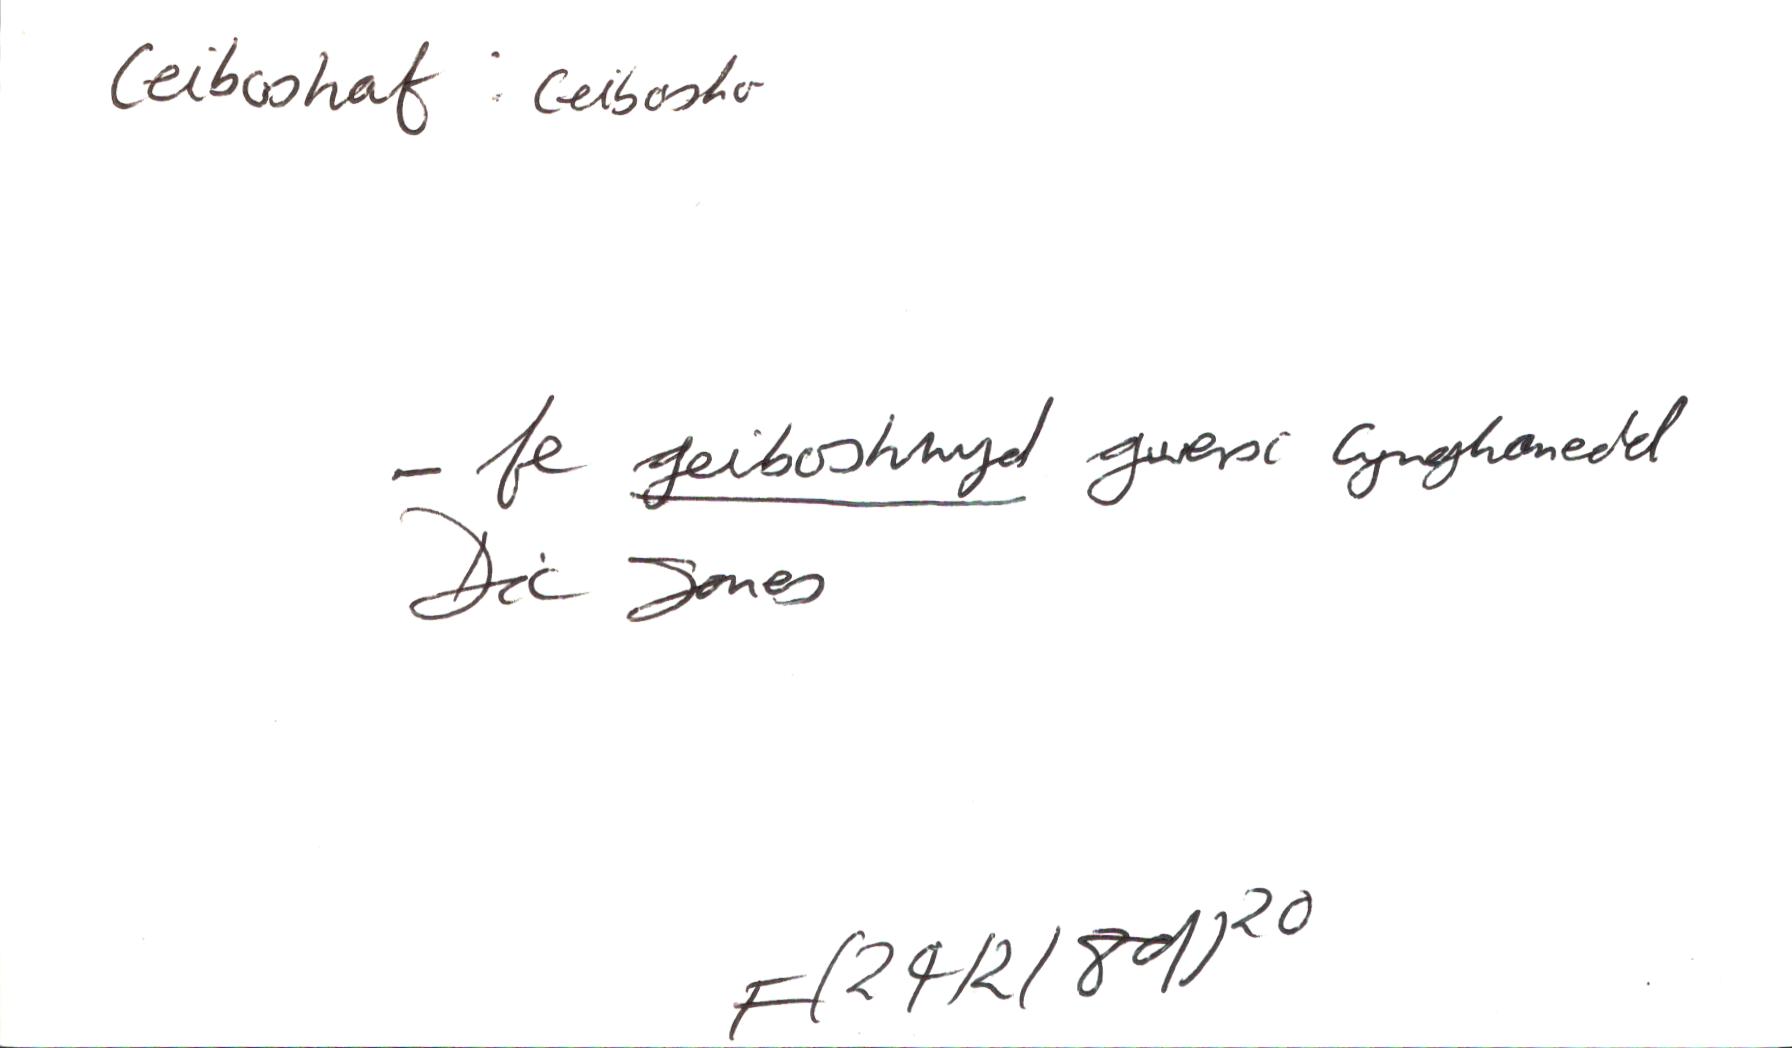 Ceiboshaf : ceibosho
- fe geiboshwyd gwersi Cynghanedd
Dic Jones
F(24/2/89)20